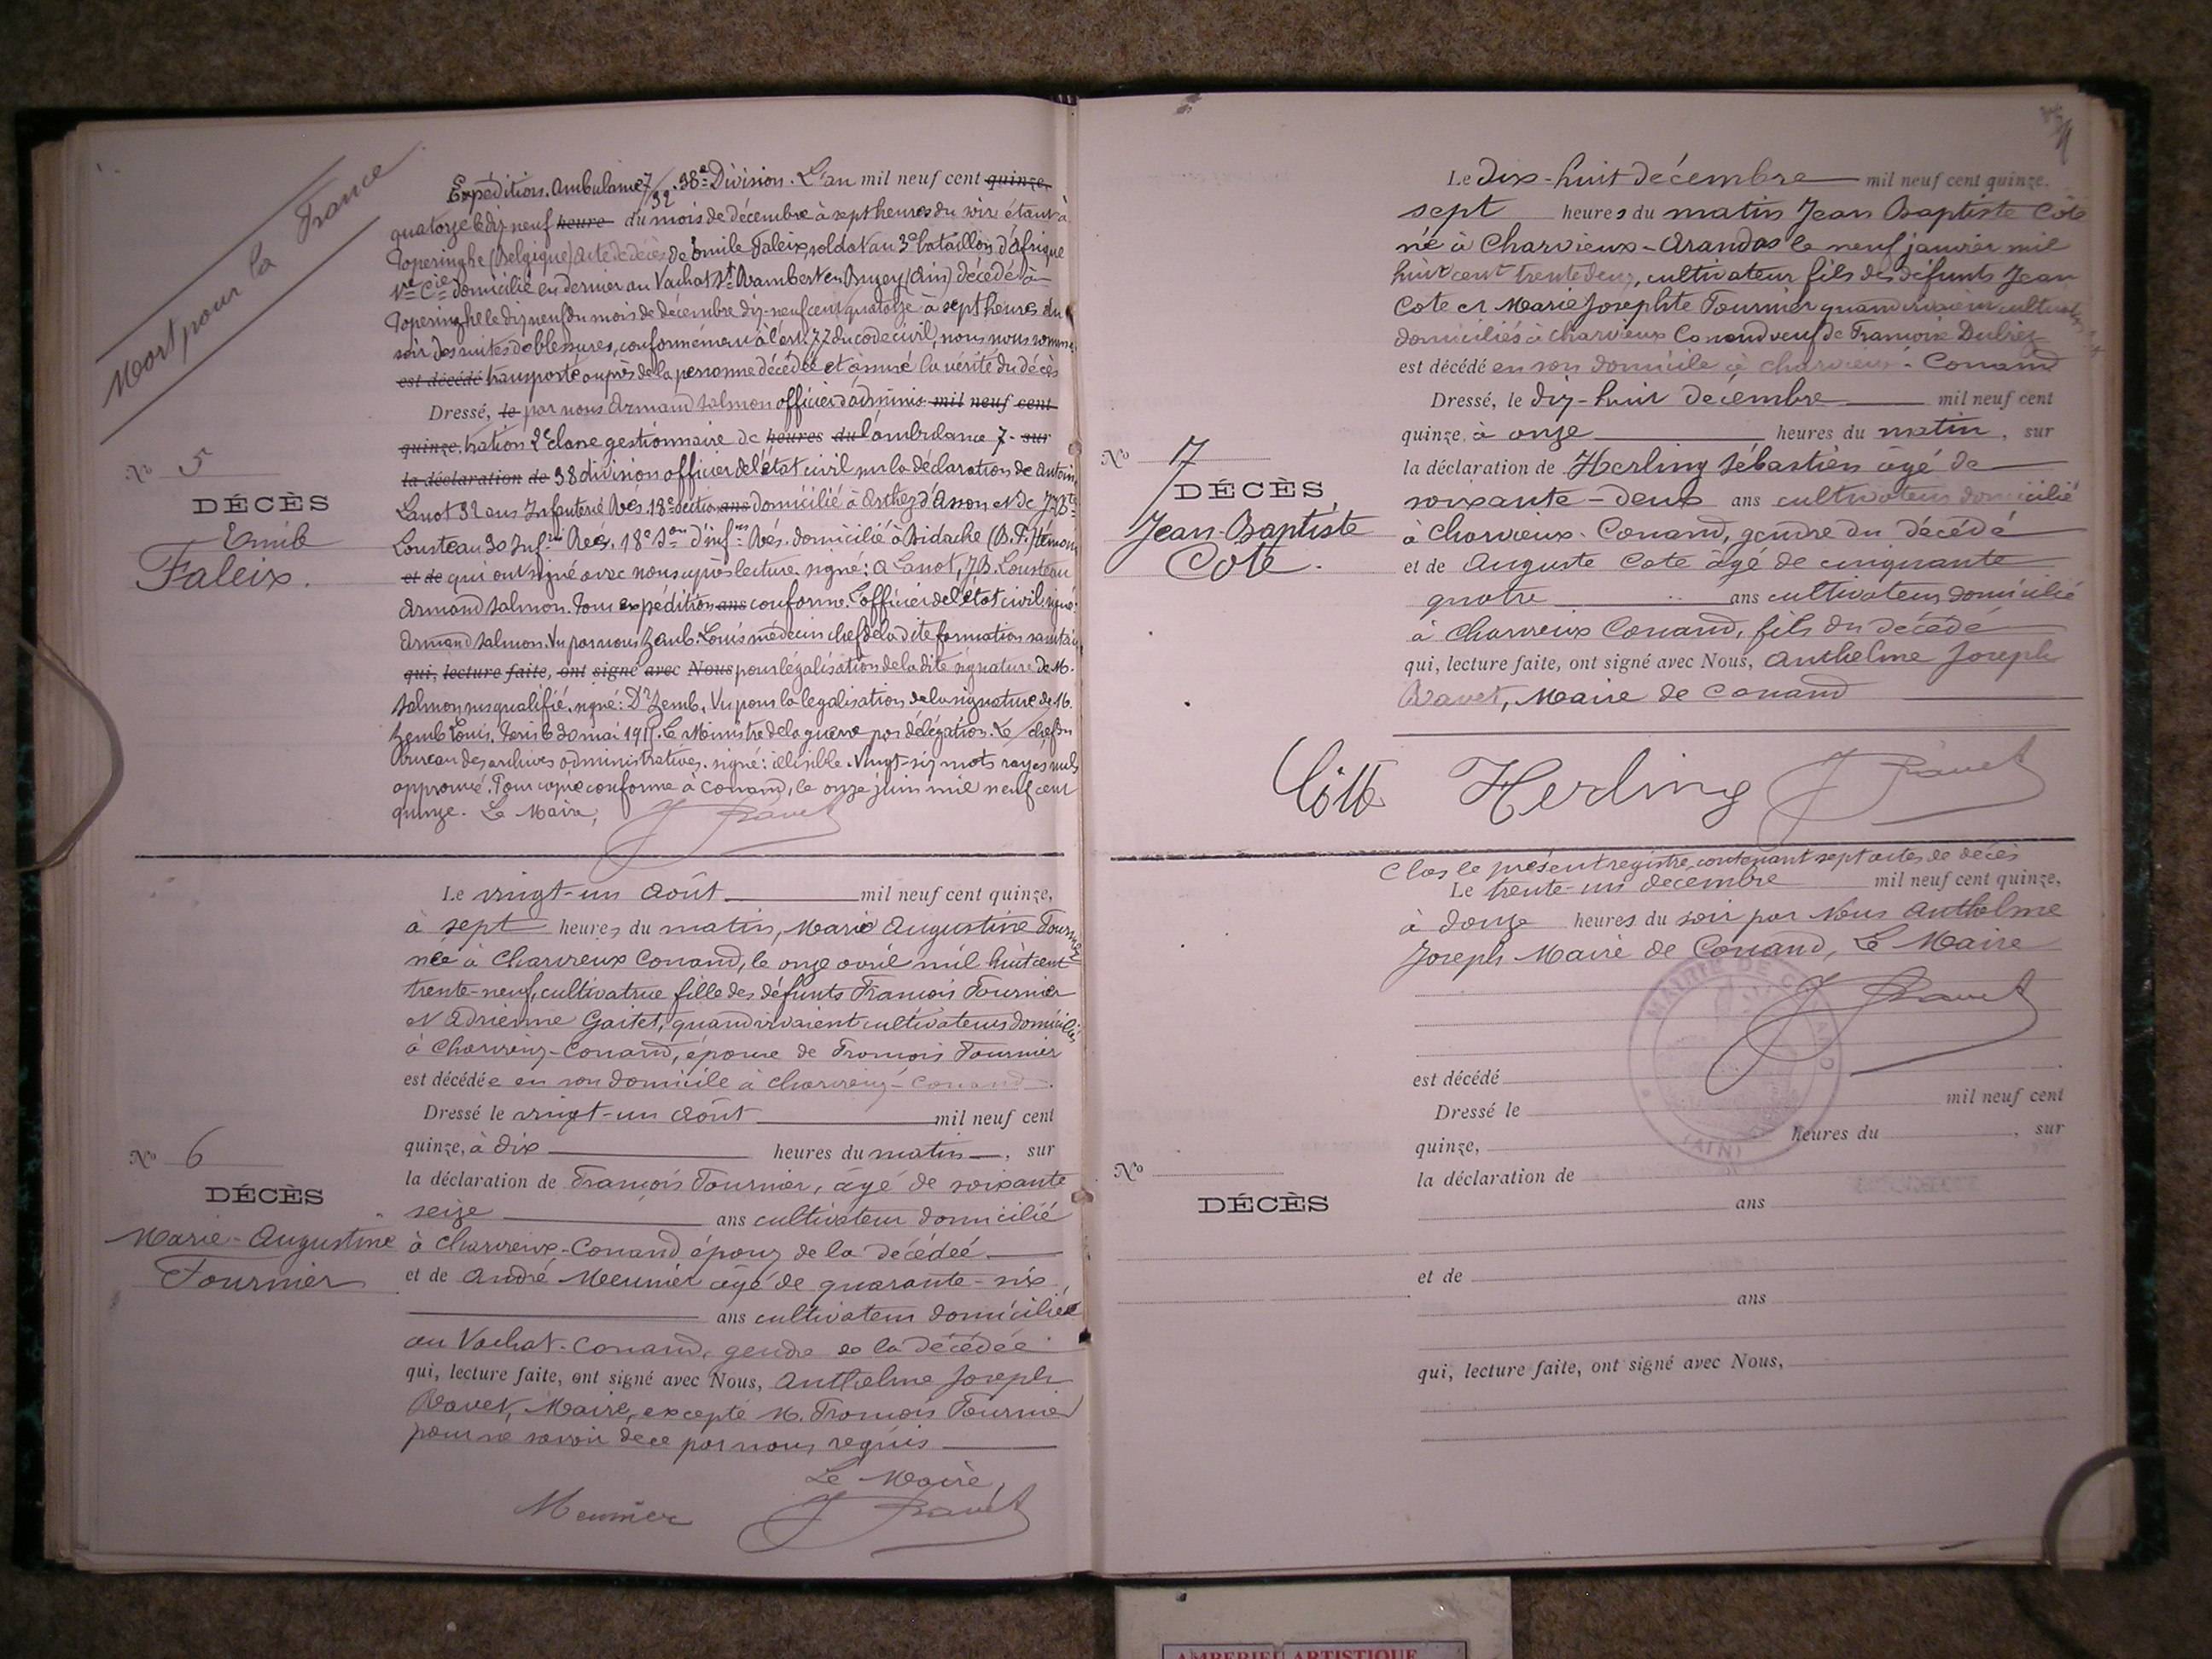 Mort pour la France
Nº 5
DÉCÈS
Emile
Faleix.
Expédition. Ambulance 7/32. 38e Division. L'an mil neuf cent quinze,
quatorze le dix neuf heure du mois de décembre à sept heures du soir étant à
Poperinghe (Belgique) acte de décès de Emile Faleix, soldat au 3e bataillon d'Afrique
1re Cie domicilié en dernier au Vachat St Rambert en Bugey (Ain) décédé à
Poperinghe le dix neuf du mois de décembre dix-neuf cent quatorze à sept heures du
soir des suites de blessures, conformément à l'art. 77 du code civil, nous nous sommes
est décédé transporté auprès de la personne décédée et assuré la vérité du décès
Dressé, le par nous Armand Salmon officier d'adminis- mil neuf cent
quinze. tration 2e classe gestionnaire de heures du l'ambulance 7- sur
la déclaration de 38 division officier de l'état civil sur la déclaration de Antoine
Lanot 32 ans Infanterie Rés. 18e section ans domicilié à Arthez d'Asson et de J. Bte
Lousteau 30 Infrie Rés. 18e Son d'infrs Rés. domicilié à Bidache (B.P.) témoins
et de qui ont signé avec nous après lecture signé: A Lanot, J.B. Lousteau
Armand Salmon. Pour expédition ans conforme. L'officier de l'état civil signé:
Armand Salmon. Vu par nous Zemb. Louis médecin chef de la dite formation sanitaire
qui, lecture faite, ont signé avec Nous pour légalisation de la dite signature de M.
Salmon susqualifié. signé: Dr Zemb. Vu pour la légalisation de la signature de M.
Zemb Louis. Paris le 30 mai 1915. Le Ministre de la guerre par délégation. Le chef du
Bureau des archives administratives. signé: illisible. Vingt-six mots rayés nuls
approuvé. Pour copie conforme à Conand, le onze juin mil neuf cent
quinze. Le Maire,
J Ravet
Nº 6
DÉCÈS
Marie-Augustine
Fournier
Le vingt-un août mil neuf cent quinze,
à sept heures du matin, Marie Augustine Fournier
née à Charvieux Conand, le onze avril mil huit cent
trente-neuf, cultivatrice fille des défunts François Fournier
et Adrienne Gaitet, quand vivaient cultivateurs domiciliés
à Charvieux-Conand, épouse de François Fournier
est décédée en son domicile à Charvieux-Conand.
Dressé le vingt-un août mil neuf cent
quinze, à dix heures du matin, sur
la déclaration de François Fournier, âgé de soixante
seize ans cultivateur domicilié
à Charvieux-Conand époux de la décédée
et de André Meunier âgé de quarante-six
ans cultivateur domicilié
au Vachat-Conand, gendre de la décédée
qui, lecture faite, ont signé avec Nous, Anthelme Joseph
Ravet, Maire, excepté M. François Fournier
pour ne savoir de ce par nous requis
Le Maire,
Meunier J Ravet
Nº 7
DÉCÈS
Jean-Baptiste
Cote.
Le dix-huit décembre mil neuf cent quinze.
sept heures du matin Jean Baptiste Cote
né à Charvieux-Arandas le neuf janvier mil
huit cent trente deux, cultivateur fils des défunts Jean
Cote et Marie Josephte Fournier quand vivaient cultivateurs
domiciliés à Charvieux Conand veuf de Françoise
est décédé en son domicile à Charvieux-Conand
Dressé, le dix-huit décembre mil neuf cent
quinze, à onze heures du matin, sur
la déclaration de Herling Sébastien âgé de
soixante-deux ans cultivateur domicilié
à Charvieux-Conand, gendre du décédé
et de Auguste Cote âgé de cinquante
quatre ans cultivateur domicilié
à Charvieux Conand, fils du décédé
qui, lecture faite, ont signé avec Nous, Anthelme Joseph
Ravet, Maire de Conand
Herling J Ravet
Clos le présent registre, contenant sept actes de décès
Le trente-un décembre mil neuf cent quinze,
à douze heures du soir par Nous Anthelme
Joseph Maire de Conand, Le Maire
J Ravet
MAIRIE DE CONAND
(AIN)
est décédé
Dressé le mil neuf cent
quinze, heures du , sur
Nº
DÉCÈS
la déclaration de
ans
et de
ans
qui, lecture faite, ont signé avec Nous,
AMBERIEU ARTISTIQUE